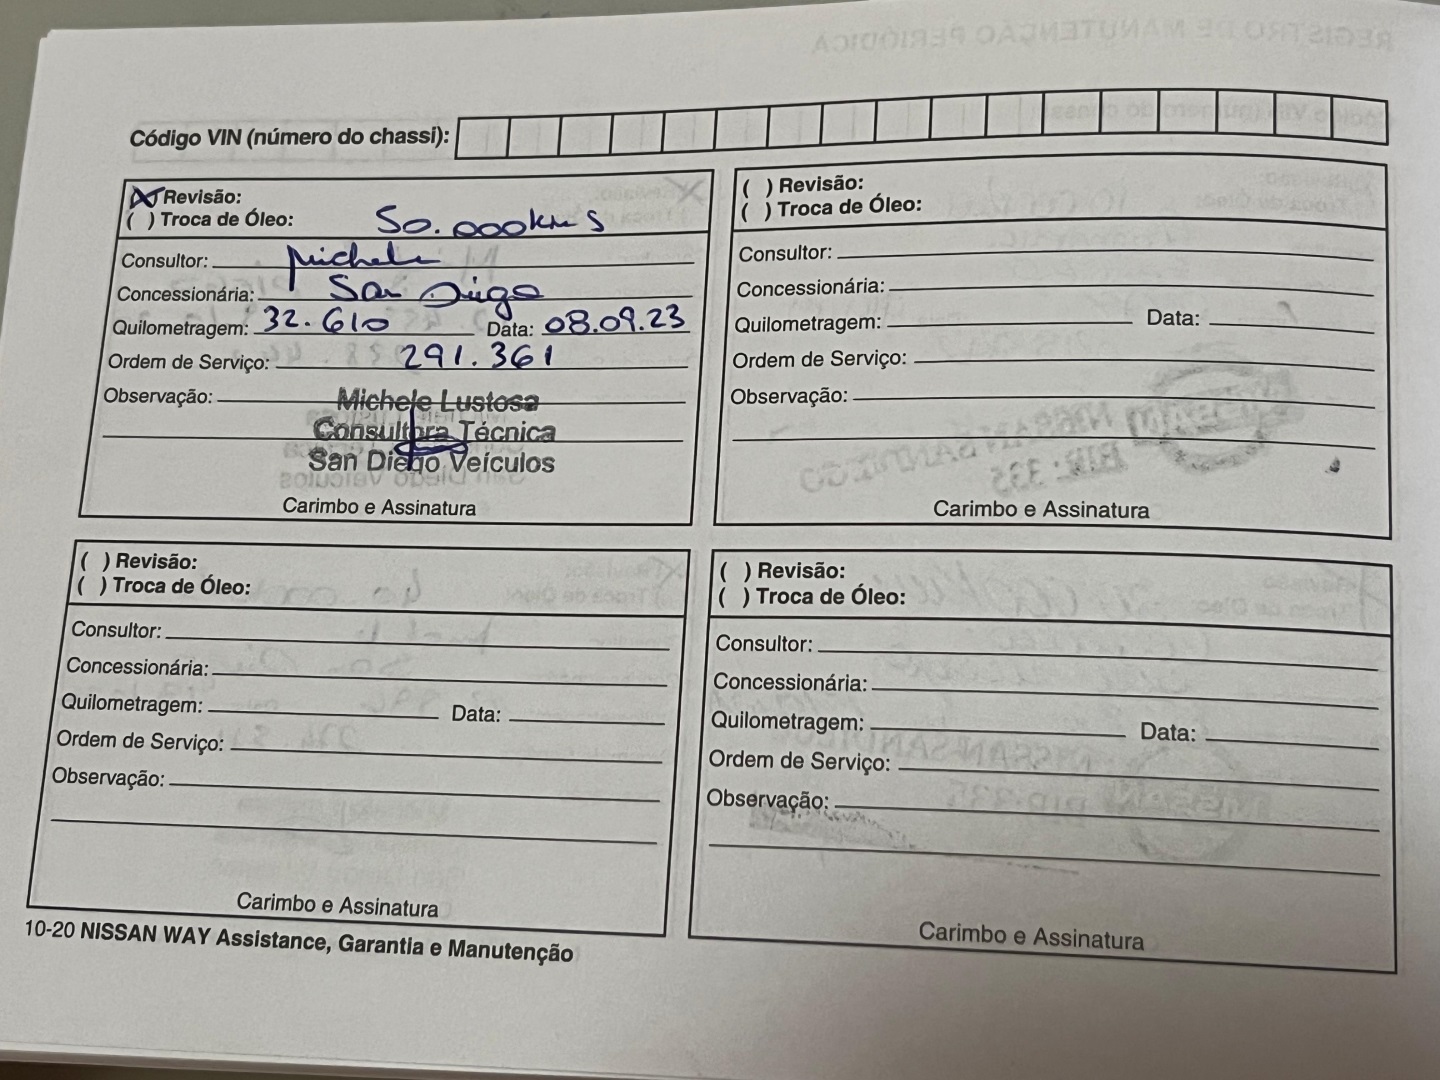 Código VIN (número do chassi):
(X) Revisão:
( ) Troca de Óleo: 50.000kms
Consultor: Michele
Concessionária: San Diego
Quilometragem: 32.610 Data: 08.09.23
Ordem de Serviço: 291.361
Observação: Michele Lustosa
Consultora Técnica
San Diego Veículos
Carimbo e Assinatura
( ) Revisão:
( ) Troca de Óleo:
Consultor:
Concessionária:
Quilometragem: Data:
Ordem de Serviço:
Observação:
Carimbo e Assinatura
( ) Revisão:
( ) Troca de Óleo:
Consultor:
Concessionária:
Quilometragem: Data:
Ordem de Serviço:
Observação:
Carimbo e Assinatura
( ) Revisão:
( ) Troca de Óleo:
Consultor:
Concessionária:
Quilometragem: Data:
Ordem de Serviço:
Observação:
Carimbo e Assinatura
10-20 NISSAN WAY Assistance, Garantia e Manutenção